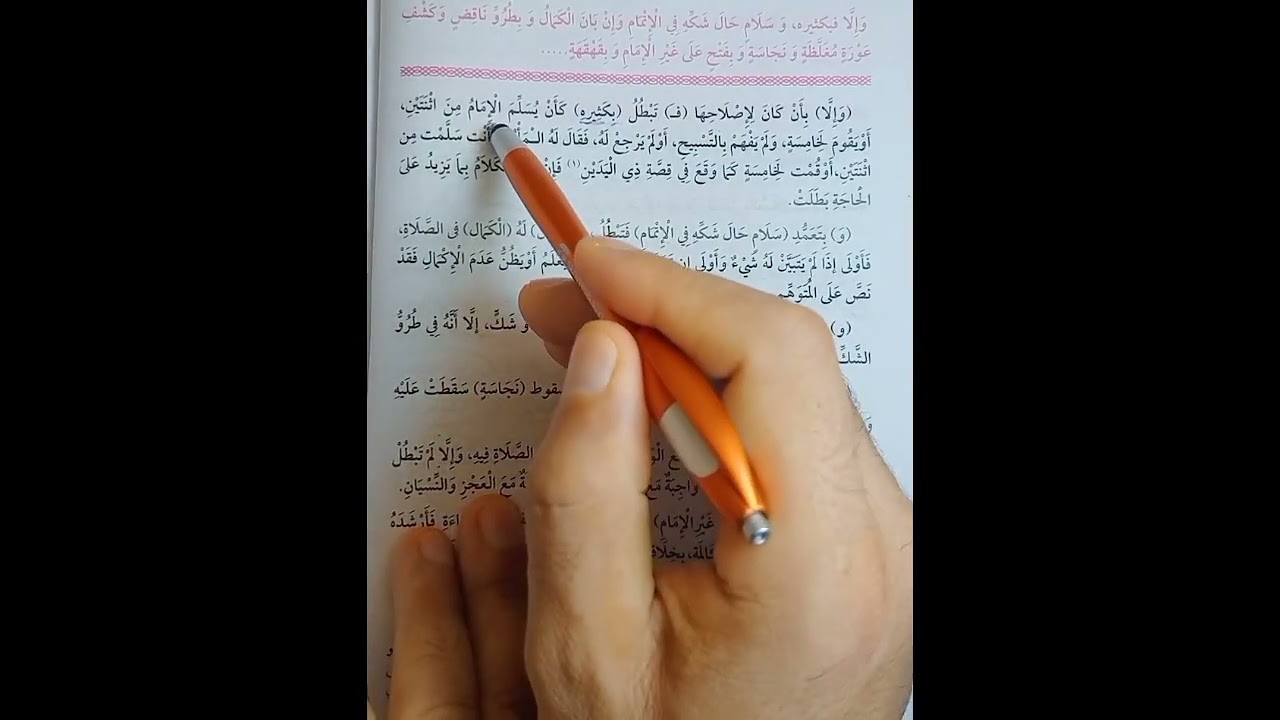 وَإِلَّا فَبِكَثِيرِه، وَ سَلَامٍ حَالَ شَكِّهِ فِي الْإِتْمَامِ وَإِنْ بَانَ الْكَمَالُ وَ بِطُرُوِّ نَاقِضٍ وَكَشْفِ
عَوْرَةٍ مُغَلَّظَةٍ وَ نَجَاسَةٍ وَ بِفَتْحٍ عَلَى غَيْرِ الْإِمَامِ وَ بِقَهْقَهَةٍ.....
(وَإِلَّا) بِأَنْ كَانَ لِإِصْلَاحِهَا (فَـ) تَبْطُلُ (بِكَثِيرِهِ) كَأَنْ يُسَلِّمَ الْإِمَامُ مِنَ اثْنَتَيْنِ،
أَوْ يَقُومَ لِخَامِسَةٍ، وَلَمْ يَفْهَمْ بِالتَّسْبِيحِ، أَوْ لَمْ يَرْجِعْ لَهُ، فَقَالَ لَهُ أَنْت سَلَّمْت مِن
اثْنَتَيْنِ، أَوْ قُمْت لِخَامِسَةٍ كَمَا وَقَعَ فِي قِصَّةِ ذِي الْيَدَيْنِ (١) فَإِنْ بِمَا يَزِيدُ عَلَى
الْحَاجَةِ بَطَلَتْ.
(وَ) بِتَعَمُّدِ (سَلَامٍ حَالَ شَكِّهِ فِي الْإِتْمَامِ) فَتَبْطُلُ لَهُ (الْكَمَال) فى الصَّلَاةِ،
فَأَوْلَى إِذَا لَمْ يَتَبَيَّنْ لَهُ شَيْءٌ وَأَوْلَى إن يَعْلَمُ أَوْ يَظُنُّ عَدَمَ الْإِكْمَالِ فَقَدْ
نَصَّ عَلَى الْمُتَوَهَّمِ
(و) شَكٍّ، إِلَّا أَنَّهُ فِي طُرُوُّ
الشَّكِّ
(نَجَاسَةٍ) سَقَطَتْ عَلَيْهِ
الصَّلَاةِ فِيهِ، وَإِلَّا لَمْ تَبْطُلْ
وَاجِبَةٌ مَعَ مَعَ الْعَجْزِ وَالنِّسْيَانِ.
غَيْرِ الْإِمَامِ) فَأَرْشَدَهُ
بِخِلَافِ